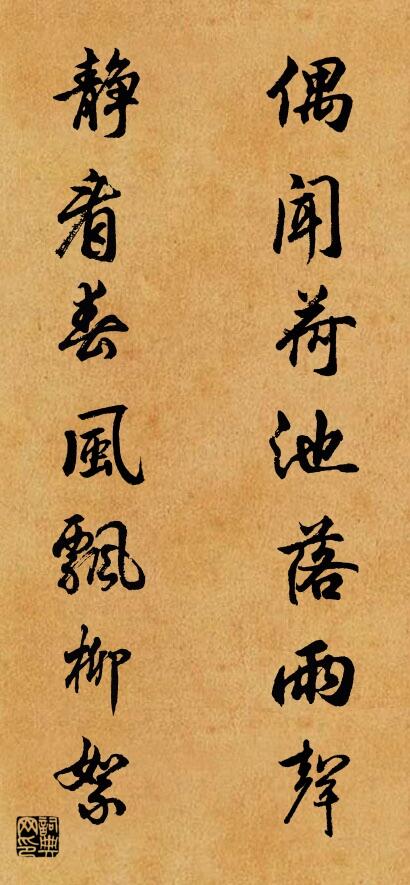 偶聞荷池落雨聲
静看春風飄柳絮
詞典网印